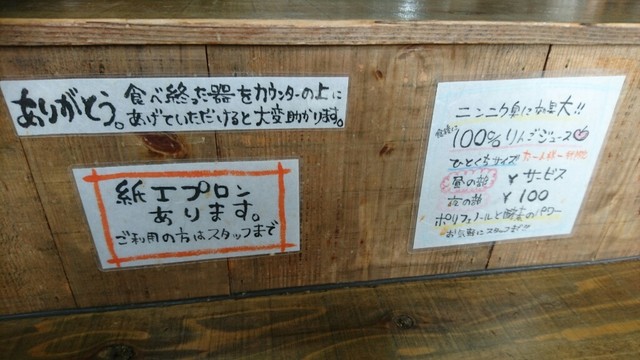 ありがとう。
食べ終った器をカウンターの上に
あげていただけると大変助かります。
紙エプロン
あります。
ご利用の方はスタッフまで
ニンニク臭に効果大!!
100%りんごジュース
ひとくちサイズ
昼の部 ¥サービス
夜の部 ¥100
ポリフェノールと酵素のパワー
お気軽にスタッフまで!!